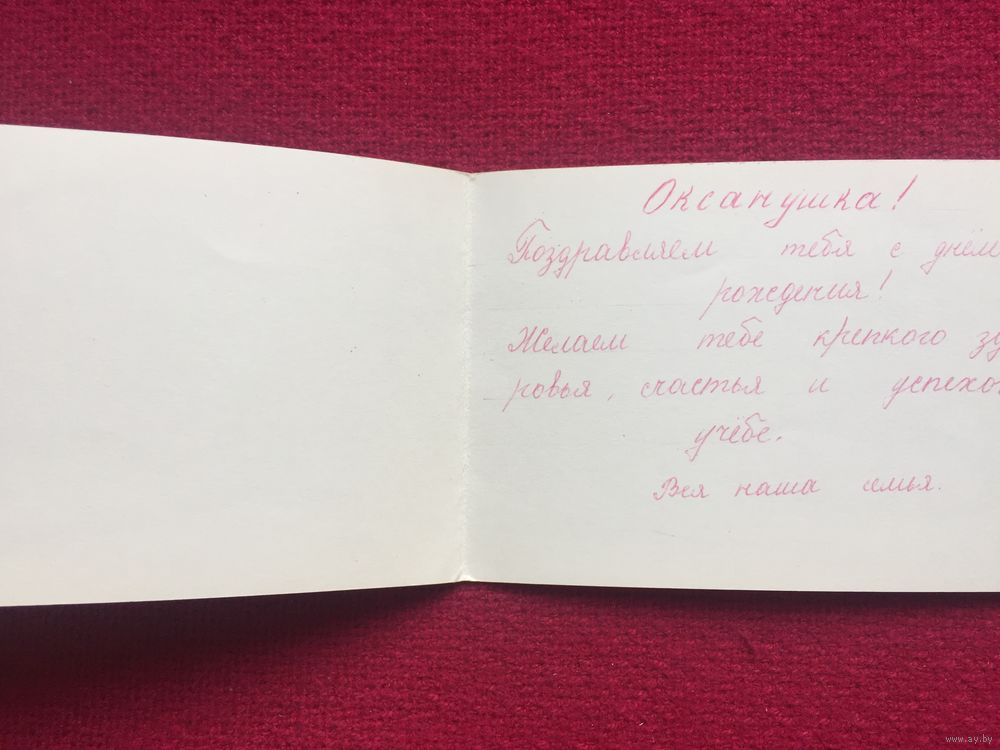 Оксанушка!
Поздравляем тебя с днём
рождения!
Желаем тебе крепкого здо
ровья, счастья и успехов
учёбе.
Вся наша семья.
www.ay.by